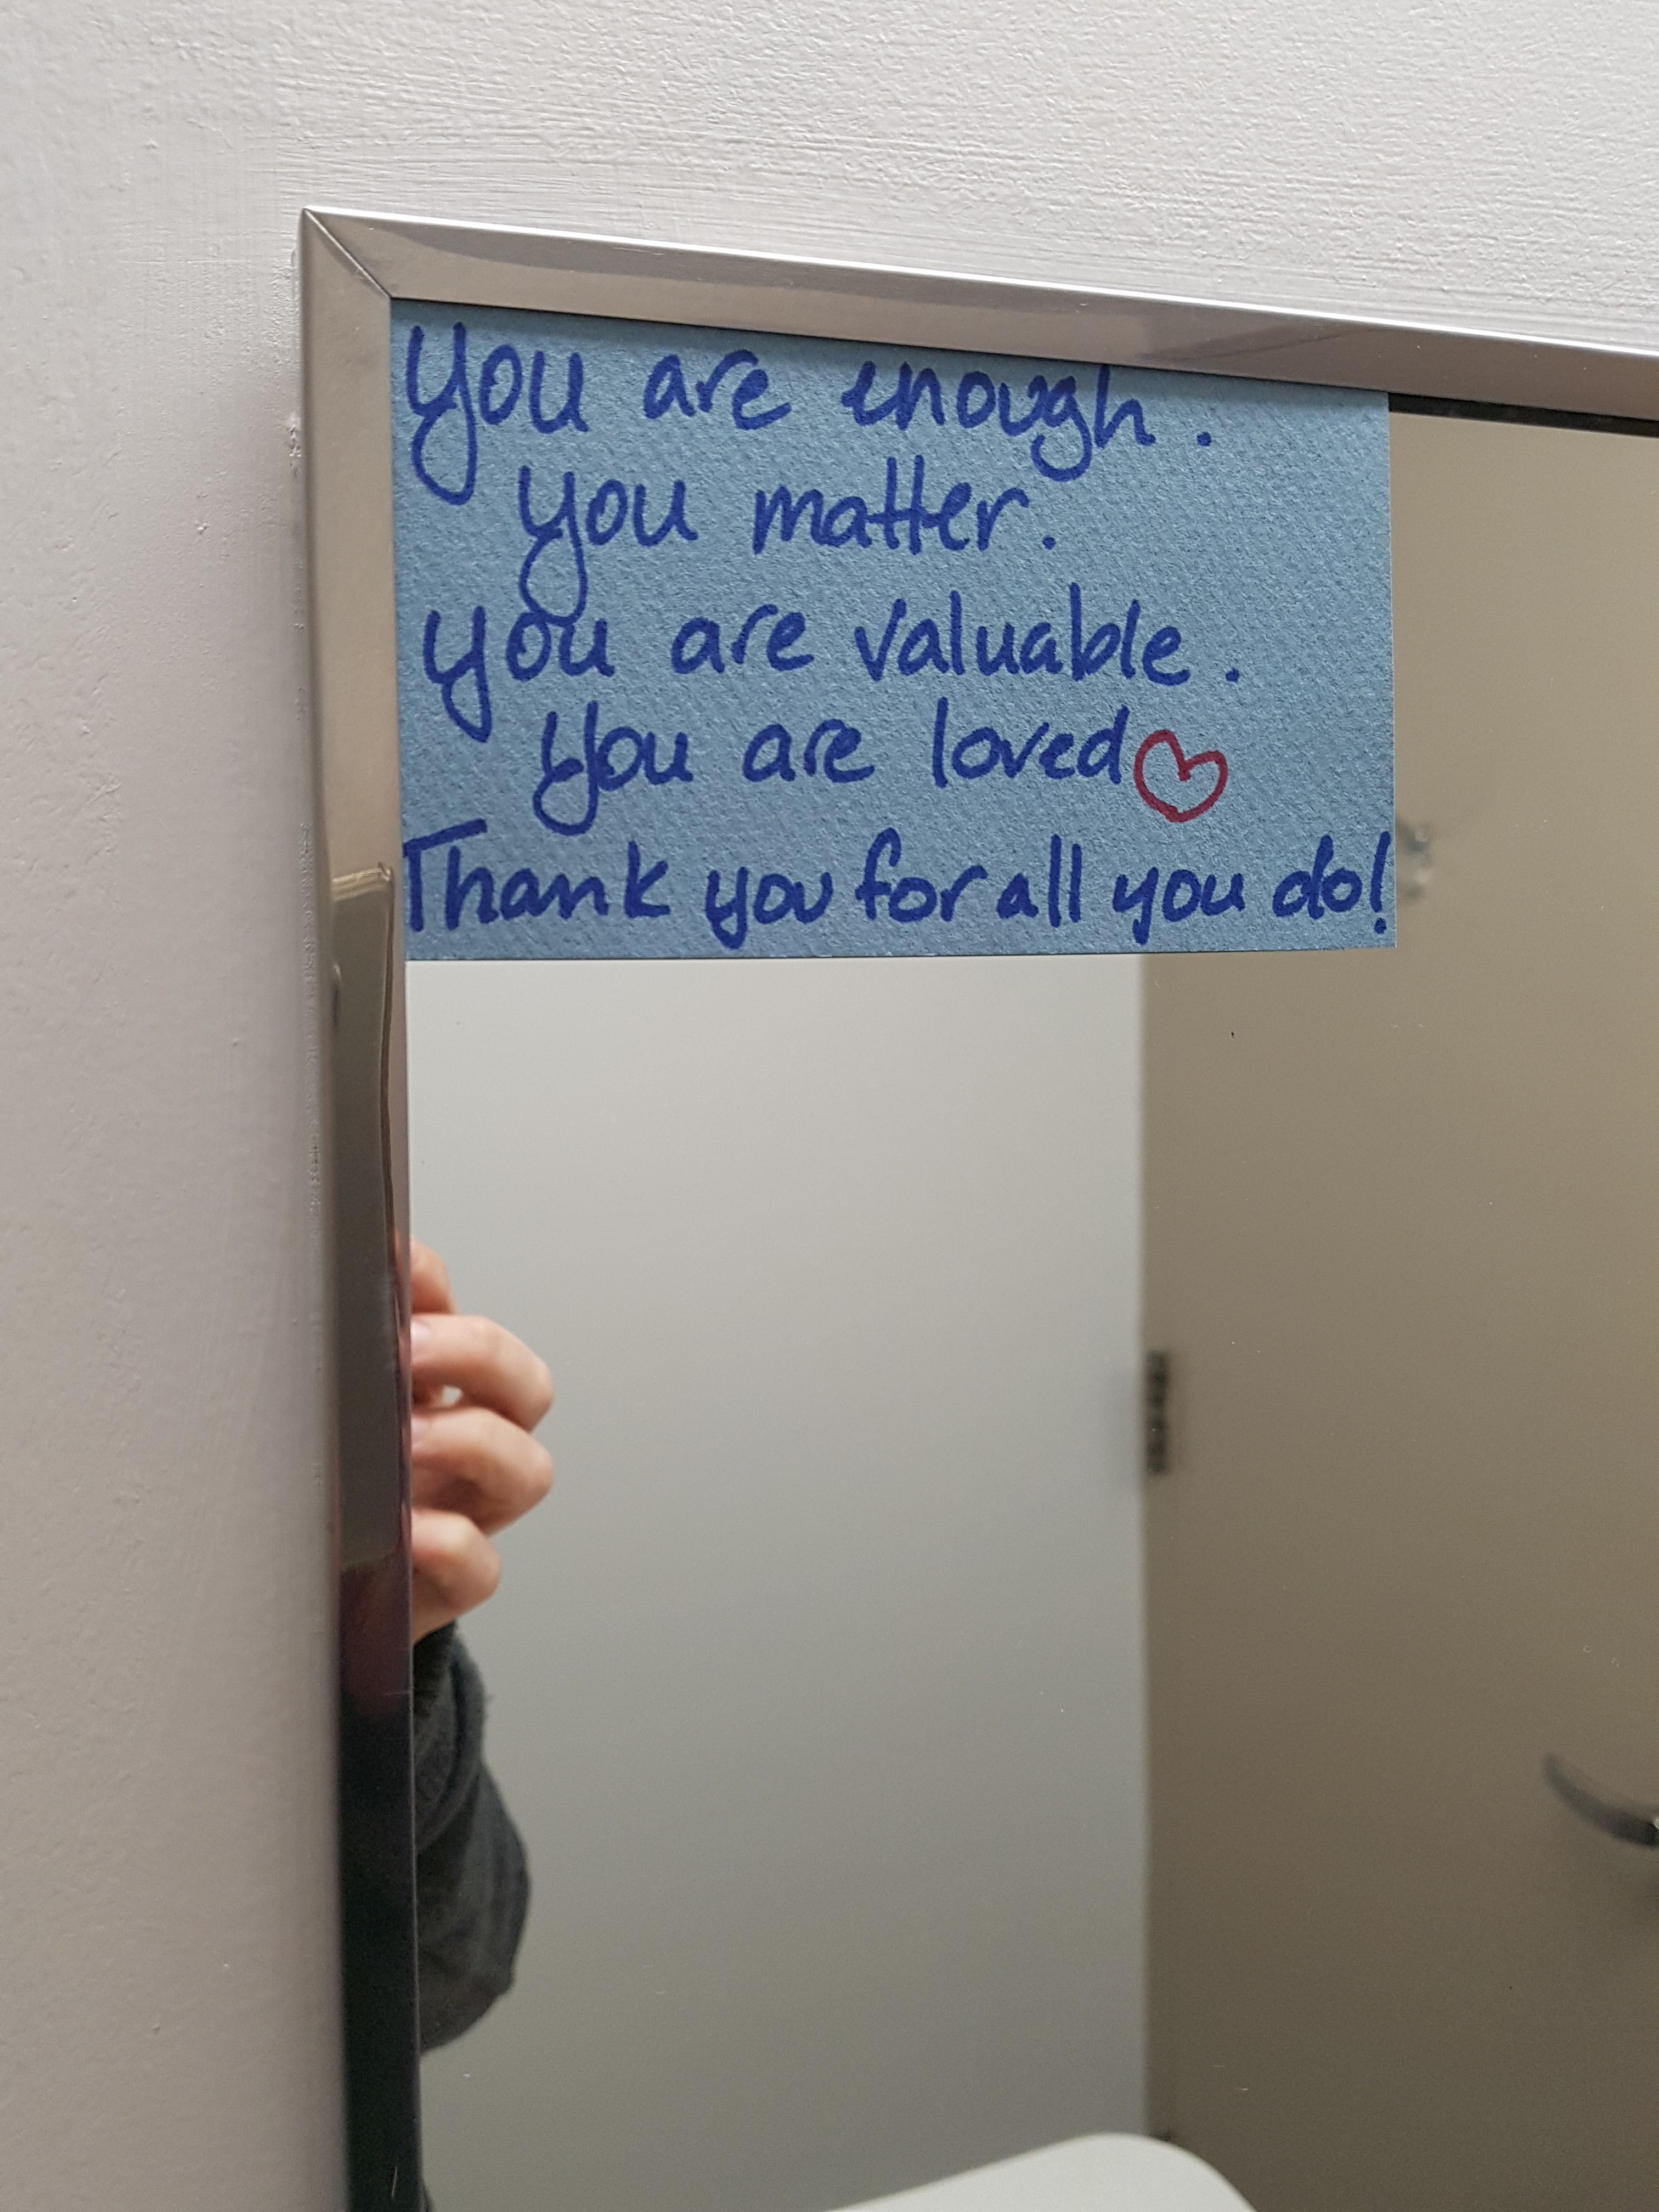 You are enough.
you matter.
you are valuable.
You are loved
Thank you for all you do!